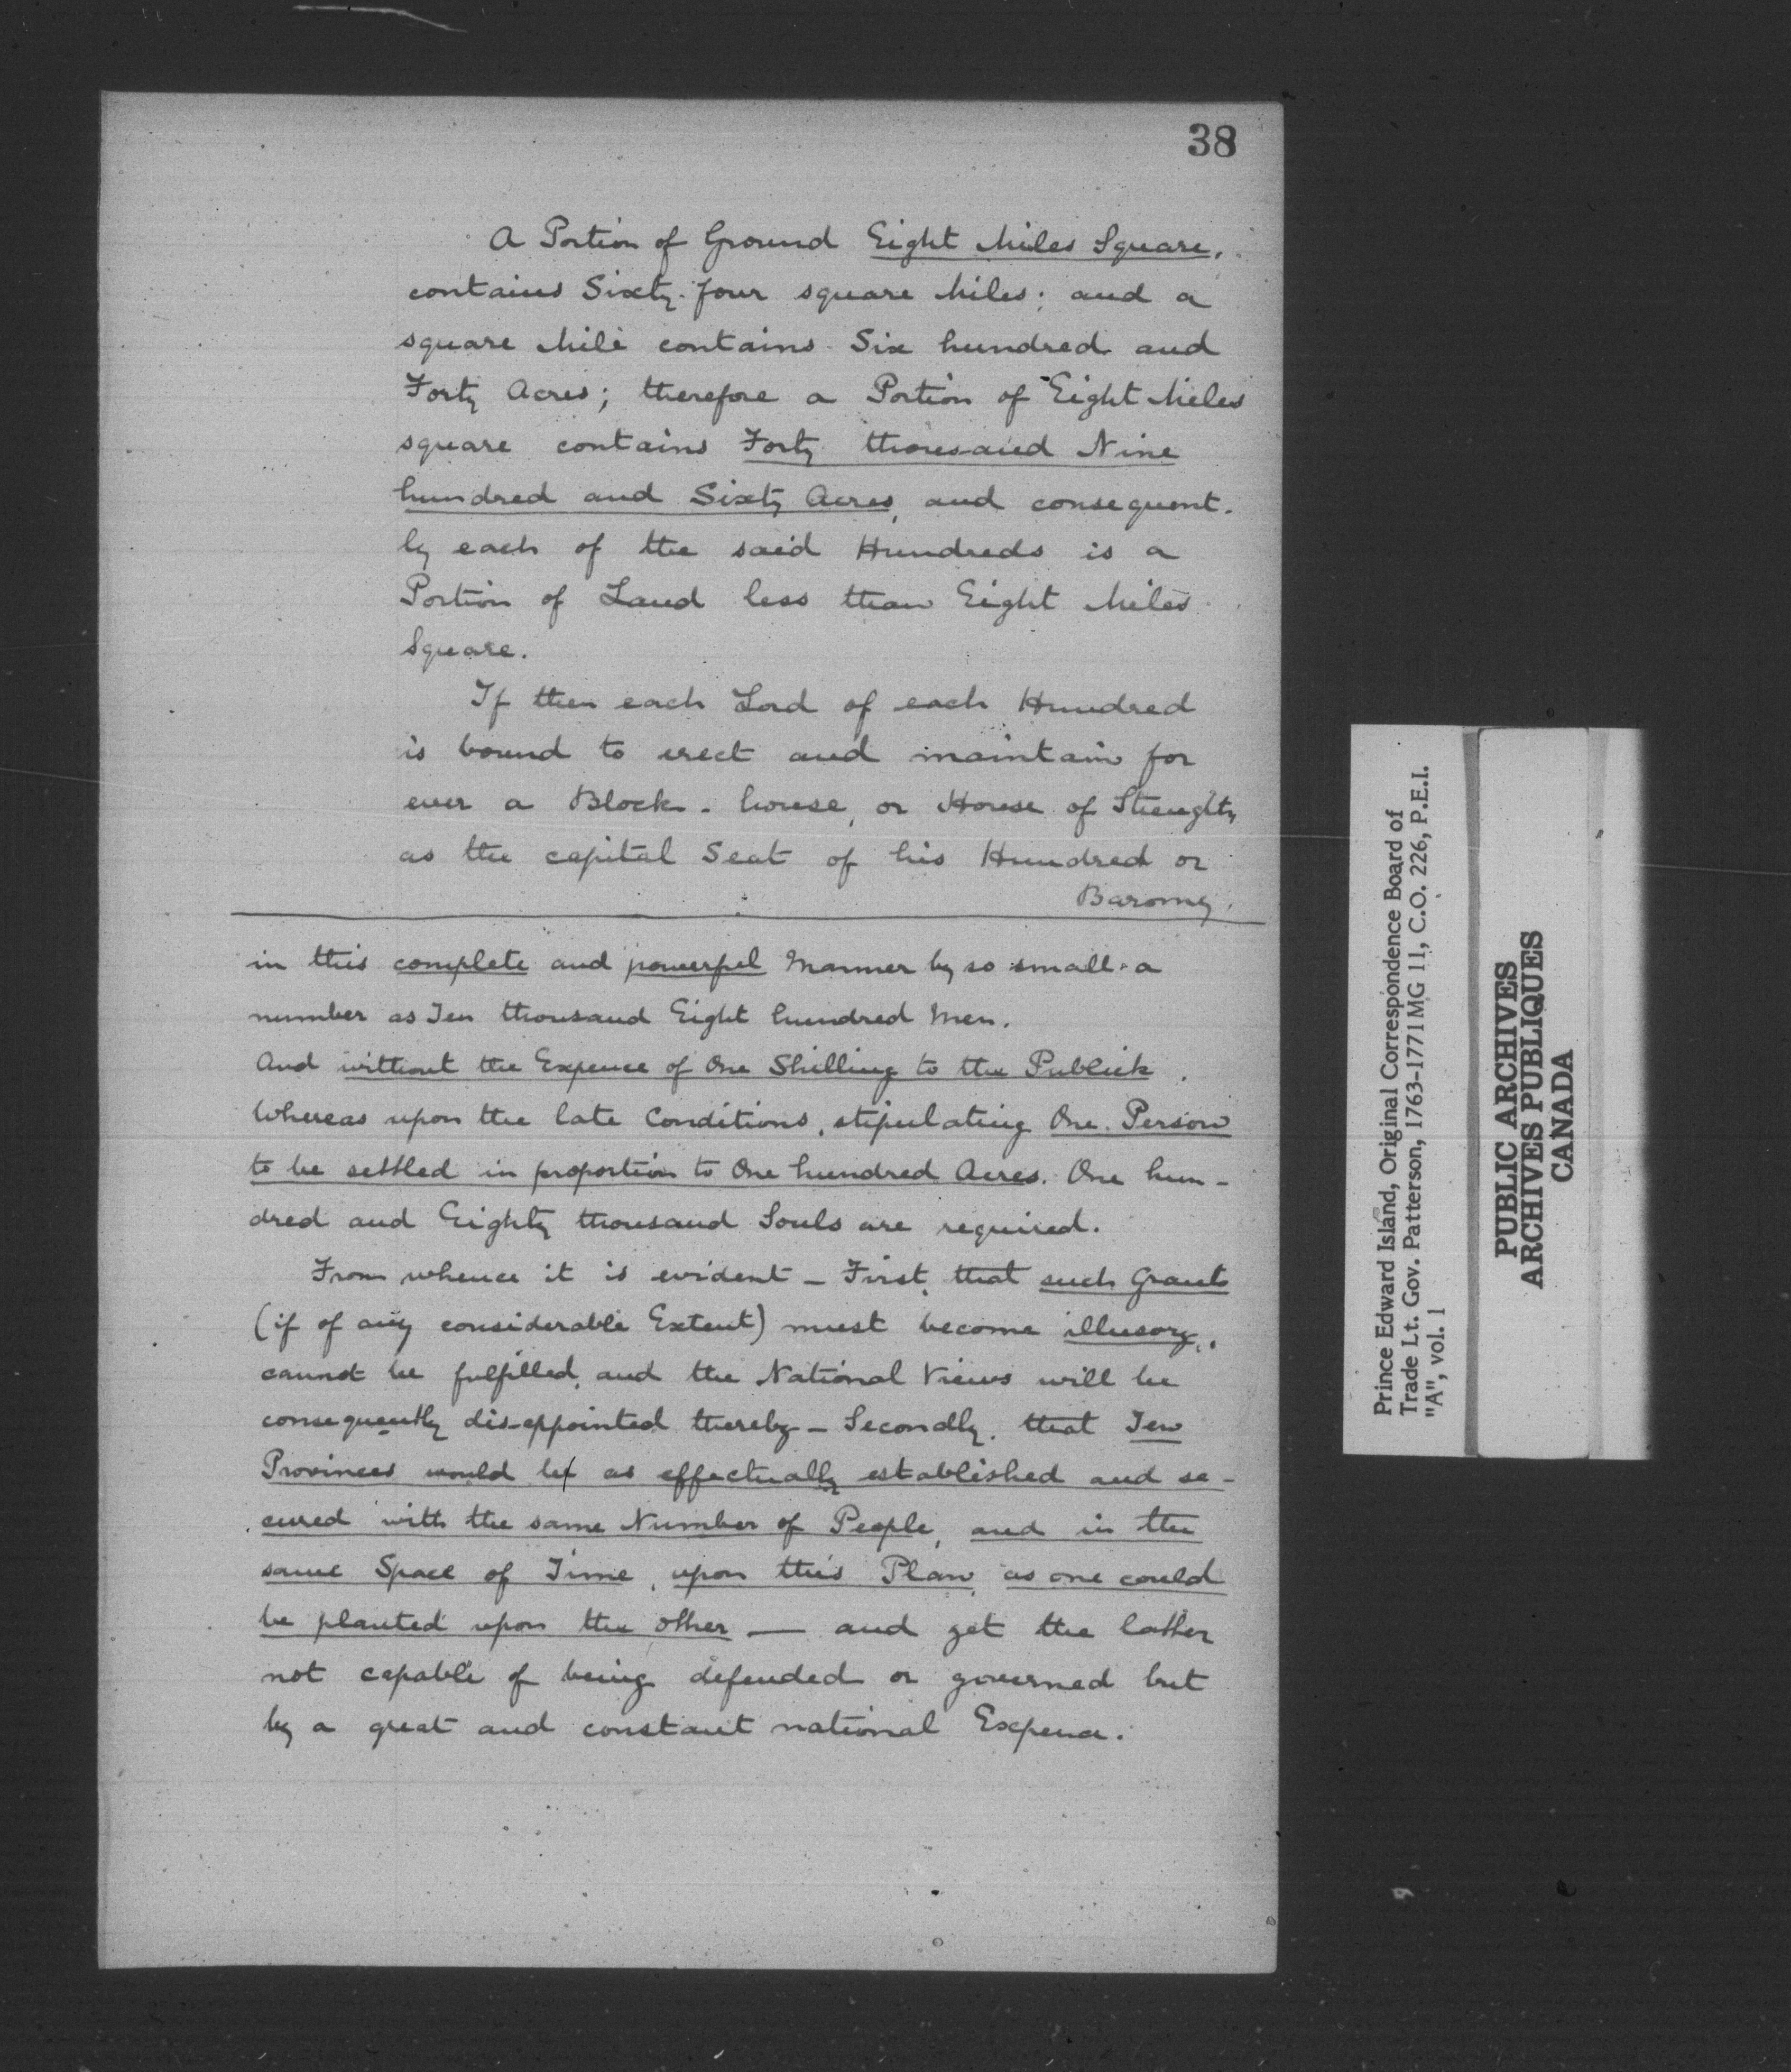 38
A Portion of Ground Eight Miles Square,
contains Sixty-four square Miles; and a
square Mile contains Six hundred and
Forty Acres; therefore a Portion of Eight Miles
square contains Forty thousand Nine
hundred and Sixty Acres, and consequent-
ly each of the said Hundreds is a
Portion of Land less than Eight Miles
Square.
If then each Lord of each Hundred
is bound to erect and maintain for
ever a Block-house, or House of Strenght,
as the capital Seat of his Hundred or
Barony.
in this complete and powerful Manner by so small a
number as Ten thousand Eight hundred Men.
And without the Expence of One Shilling to the Publick.
Whereas upon the late Conditions, stipulating One Person
to be settled in proportion to One hundred Acres. One hun-
dred and Eighty thousand Souls are required.
From whence it is evident – First, that such Grants
(if of any considerable Extent) must become illusory,
cannot be fulfilled, and the National Views will be
consequently dis-appointed thereby – Secondly, that Ten
Provinces would be as effectually established and se-
cured with the same Number of People, and in the
same Space of Time, upon this Plan, as one could
be planted upon the other — and yet the latter
not capable of being defended or governed but
by a great and constant national Expence.
Prince Edward Island, Original Correspondence Board of
Trade Lt. Gov. Patterson, 1763-1771 MG 11, C.O. 226, P.E.I.
"A", vol. 1
PUBLIC ARCHIVES
ARCHIVES PUBLIQUES
CANADA